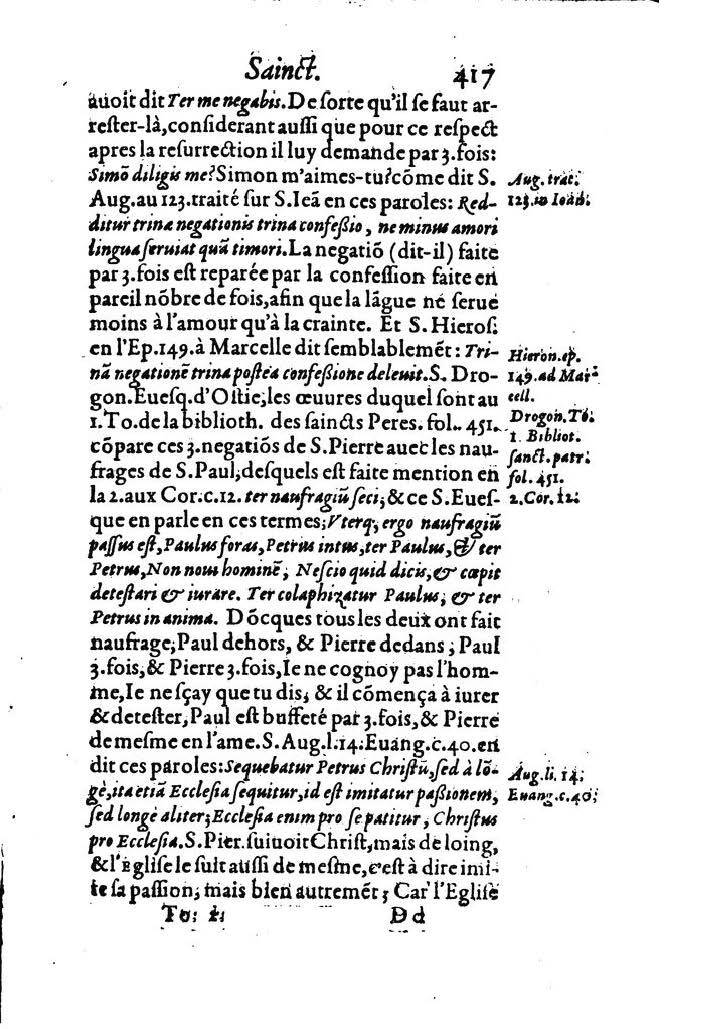 Sainct. 417
auoit dit Ter me negabis. De sorte qu'il se faut ar-
rester-là, considerant aussi que pour ce respect
apres la resurrection il luy demande par 3. fois:
Simõ diligis me? Simon m'aimes-tu? cõme dit S.
Aug. au 123. traité sur S. Ieã en ces paroles: Red-
ditur trinæ negationis trina confessio, ne minus amori
lingua seruiat quã timori. La negatiõ (dit-il) faite
par 3. fois est reparée par la confession faite en
pareil nõbre de fois, afin que la lãgue ne serue
moins à l'amour qu'à la crainte. Et S. Hieros.
en l'Ep. 149. à Marcelle dit semblablemẽt: Tri-
nã negationẽ trina postea confessione deleuit. S. Dro-
gon. Euesq. d'Ostie, les œuures duquel sont au
1. To. de la biblioth. des saincts Peres. fol. 451.
cõpare ces 3. negatiõs de S. Pierre auec les nau-
frages de S. Paul, desquels est faite mention en
la 2. aux Cor. c. 12. ter naufragiũ feci; & ce S. Eues-
que en parle en ces termes; Vterq; ergo naufragiũ
passus est, Paulus foras, Petrus intus, ter Paulus, & ter
Petrus, Non noui hominẽ, Nescio quid dicis, & cœpit
detestari & iurare. Ter colaphizatur Paulus, & ter
Petrus in anima. Dõcques tous les deux ont fait
naufrage, Paul dehors, & Pierre dedans; Paul
3. fois, & Pierre 3. fois, Ie ne cognoy pas l'hom-
me, Ie ne sçay que tu dis, & il cõmença à iurer
& detester, Paul est buffeté par 3. fois, & Pierre
de mesme en l'ame. S. Aug. l. 14. Euang. c. 40. en
dit ces paroles: Sequebatur Petrus Christũ, sed à lõ-
gè, ita etiã Ecclesia sequitur, id est imitatur passionem,
sed longè aliter; Ecclesia enim pro se patitur, Christus
pro Ecclesia. S. Pier. suiuoit Christ, mais de loing,
& l'Eglise le suit aussi de mesme, c'est à dire imi-
te sa passion, mais bien autremẽt; Car l'Eglise
To: 1. Dd
Aug. trac.
123. in Ioan.
Hieron. ep.
149. ad Mar-
cell.
Drogon. To.
1. Bibliot.
sanct. patr.
fol. 451.
2. Cor. 12.
Aug. li. 14.
Euang. c. 40.